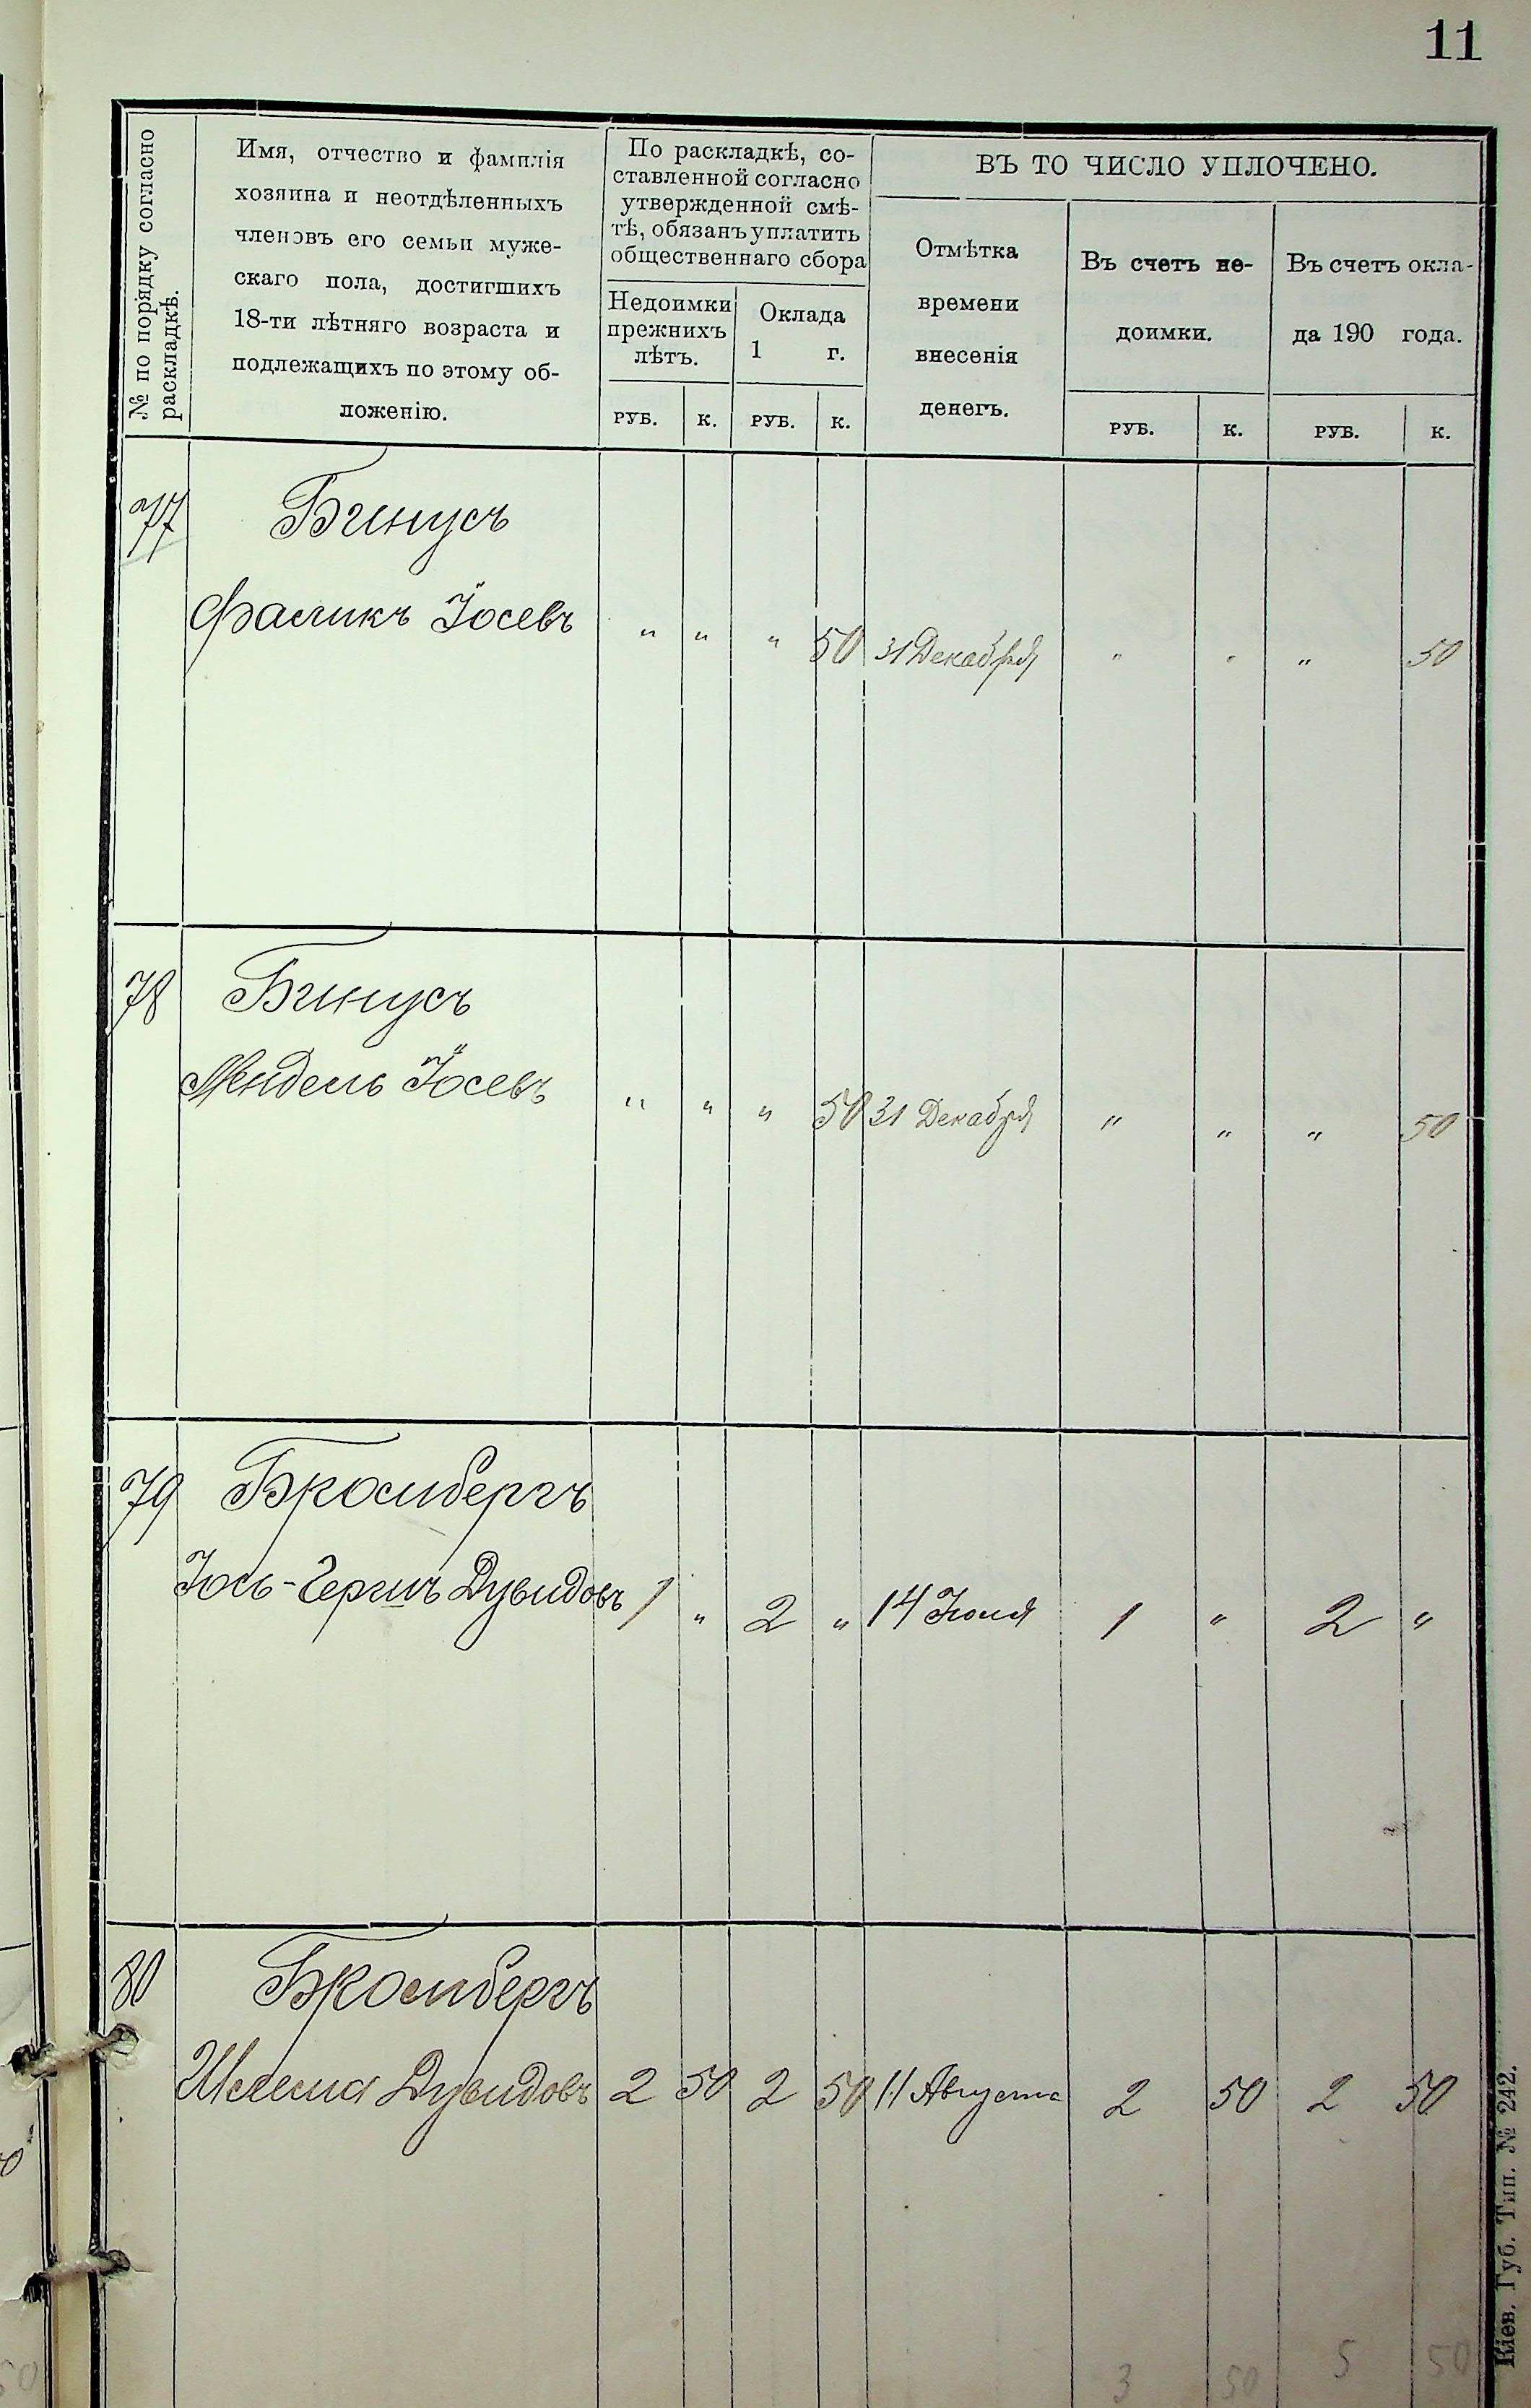 11
№ по порядку согласно
раскладкѣ.
Имя, отчество и фамилія
хозяина и неотдѣленныхъ
членовъ его семьи муже-
скаго пола, достигшихъ
18-ти лѣтняго возраста и
подлежащихъ по этому об-
ложенію.
По раскладкѣ, со-
ставленной согласно
утвержденной смѣ-
тѣ, обязанъ уплатить
общественнаго сбора
Недоимки
прежнихъ
лѣтъ.
Оклада
1 г.
ВЪ ТО ЧИСЛО УПЛОЧЕНО.
Отмѣтка
времени
внесенія
денегъ.
Въ счетъ не-
доимки.
Въ счетъ окла-
да 190 года.
РУБ. К. РУБ. К. РУБ. К. РУБ. К.
77 Бинусъ
Фаликъ Іосевъ " " " 50 31 Декабря " " " 50
78 Бинусъ
Мендель Іосевъ " " " 50 31 Декабря " " " 50
79
Дувидовъ 1 " 2 " 14 Іюля 1 " 2 "
80
Шлема Дувидовъ 2 50 2 50 11 Августа 2 50 2 50
3 50 5 50
Кіев. Губ. Тип. № 242.